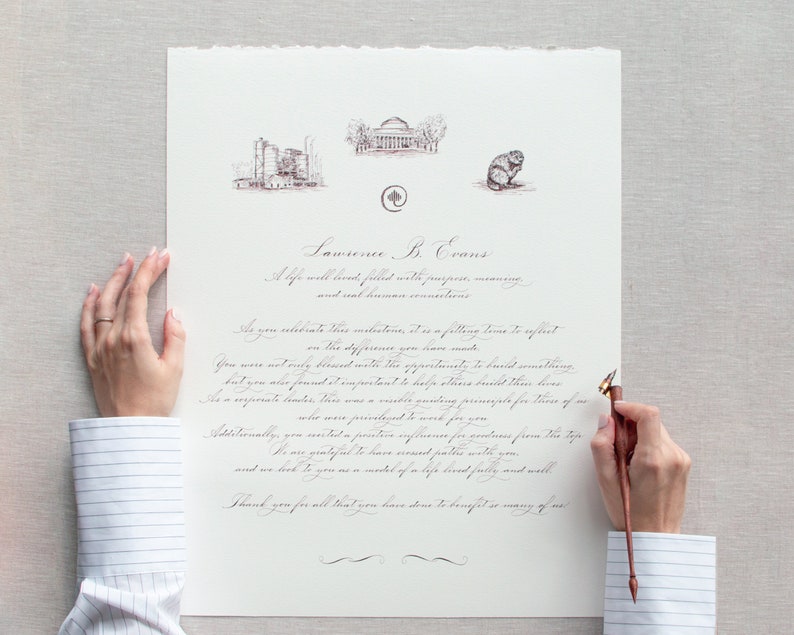 Lawrence B. Evans
A life well lived, filled with purpose, meaning,
and real human connections
As you celebrate this milestone, it is a fitting time to reflect
on the difference you have made.
You were not only blessed with the opportunity to build something,
but you also found it important to help others build their lives.
As a corporate leader, this was a visible guiding principle for those of us
who were privileged to work for you.
Additionally, you exerted a positive influence for goodness from the top.
We are grateful to have crossed paths with you,
and we look to you as a model of a life lived fully and well.
Thank you for all that you have done to benefit so many of us.